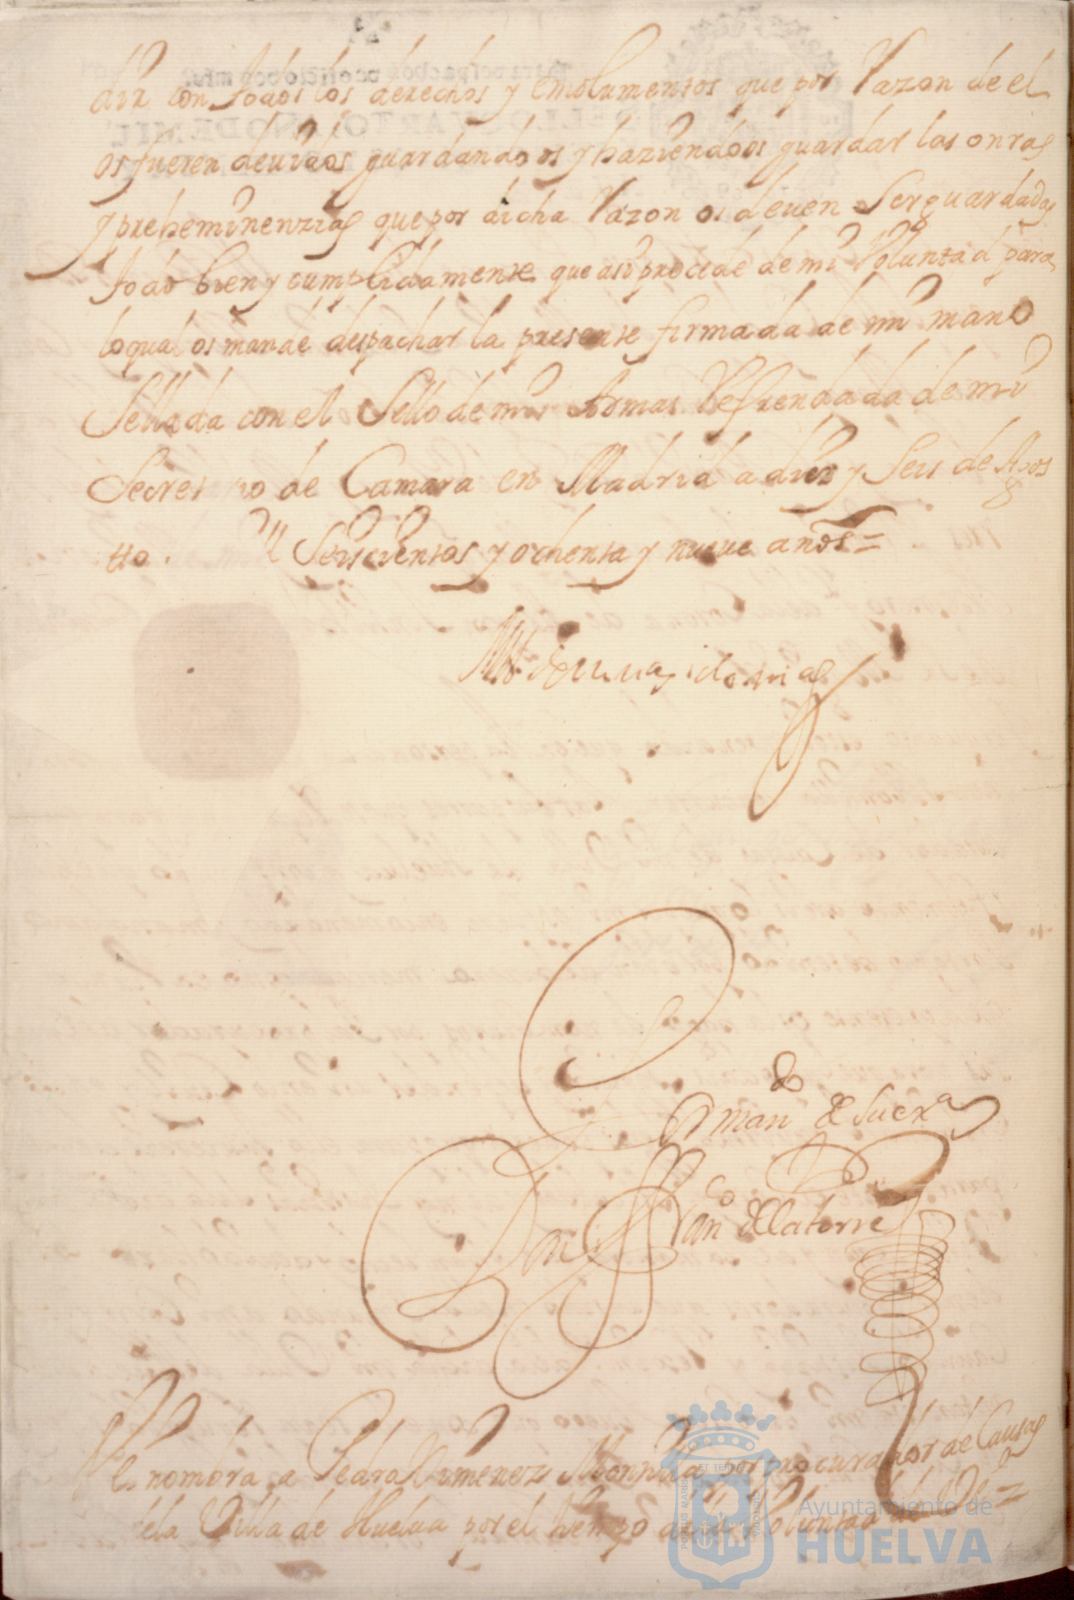 dir con todos los derechos y emolumentos que por Razon de el
os fueren devidos guardandoos y haziendoos guardar las onras
y preheminenzias que por dicha Razon os deven Ser guardadas
todo bien y cumplidamente que asi procede de mi Voluntad para
lo qual os mande despachar la presente firmada de mi mano
Sellada con el Sello de mis Armas Refrendada de mi
Secret rio de Camara en Madrid a diez y Seis de Agos
tto. Seiscientos y ochenta y nueve años=
Por mando de su exa
Don Franco de la torre
Ve nombra a Pedro Ximenez por procurador de Causas
de la Villa de Huelva por el tiempo de la Voluntad de V. e.a=
Ayuntamiento de
HUELVA